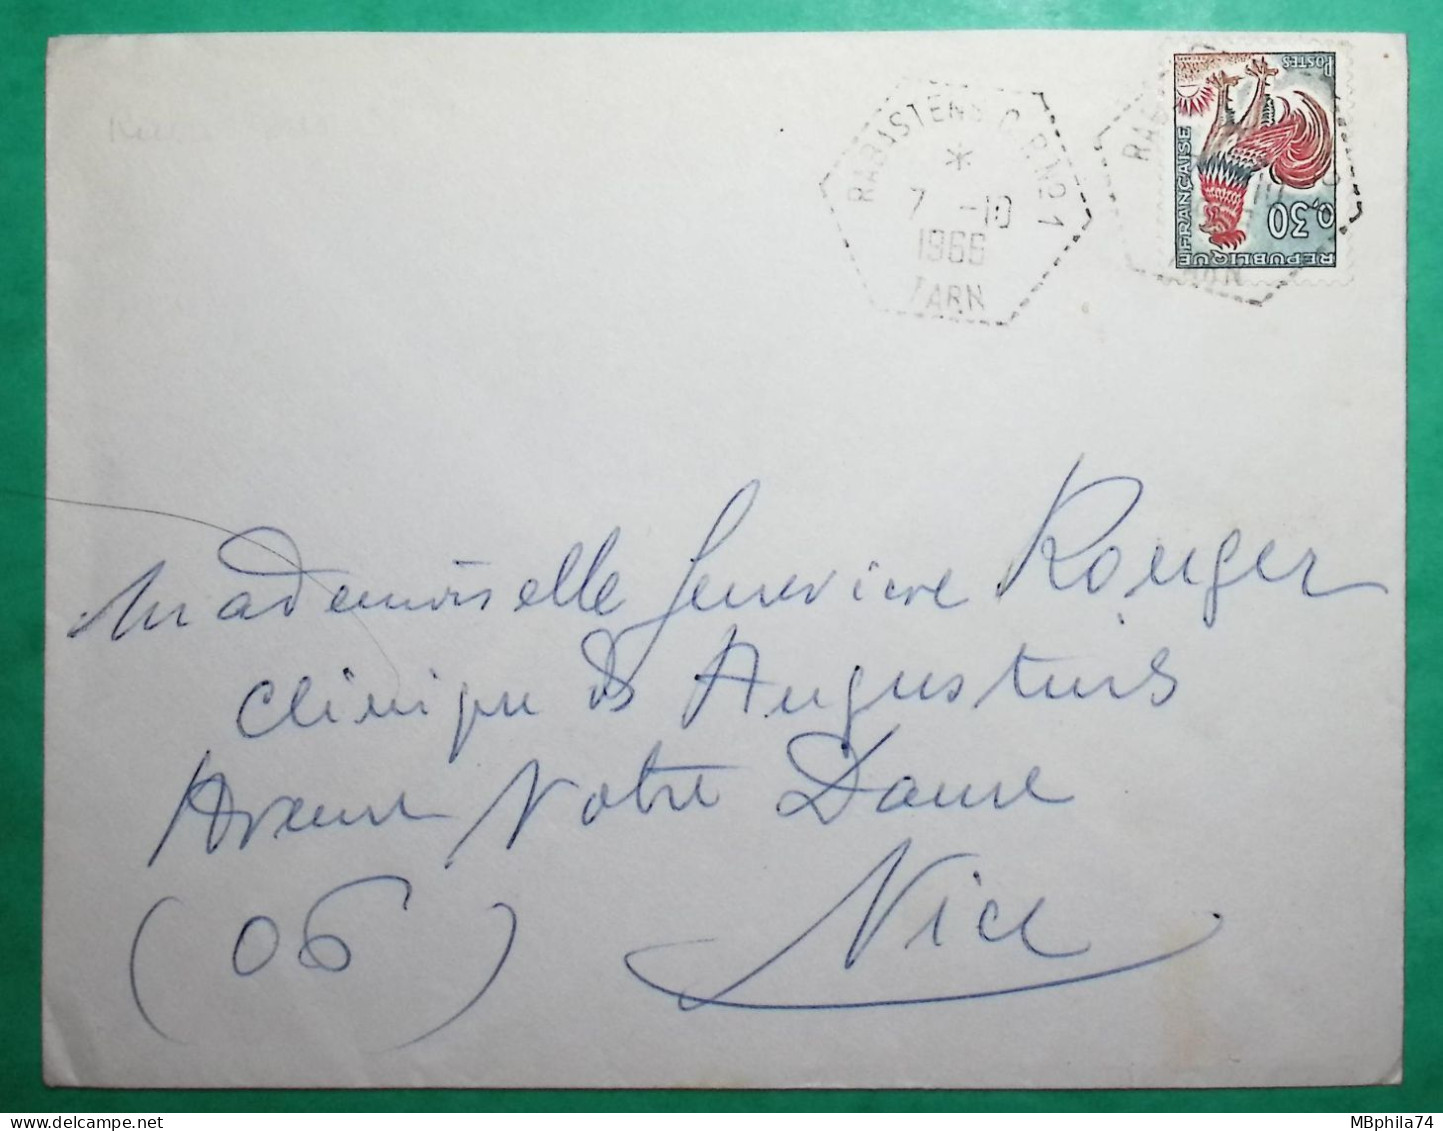 RABASTENS C.P. N°1
7 -10
1966
TARN
POSTES
0,30
REPUBLIQUE FRANÇAISE
TARN
Mademoiselle Genevieve Rouger
Clinique Ds Augustins
Avenue Notre Dame
(06) Nice
MBphila74